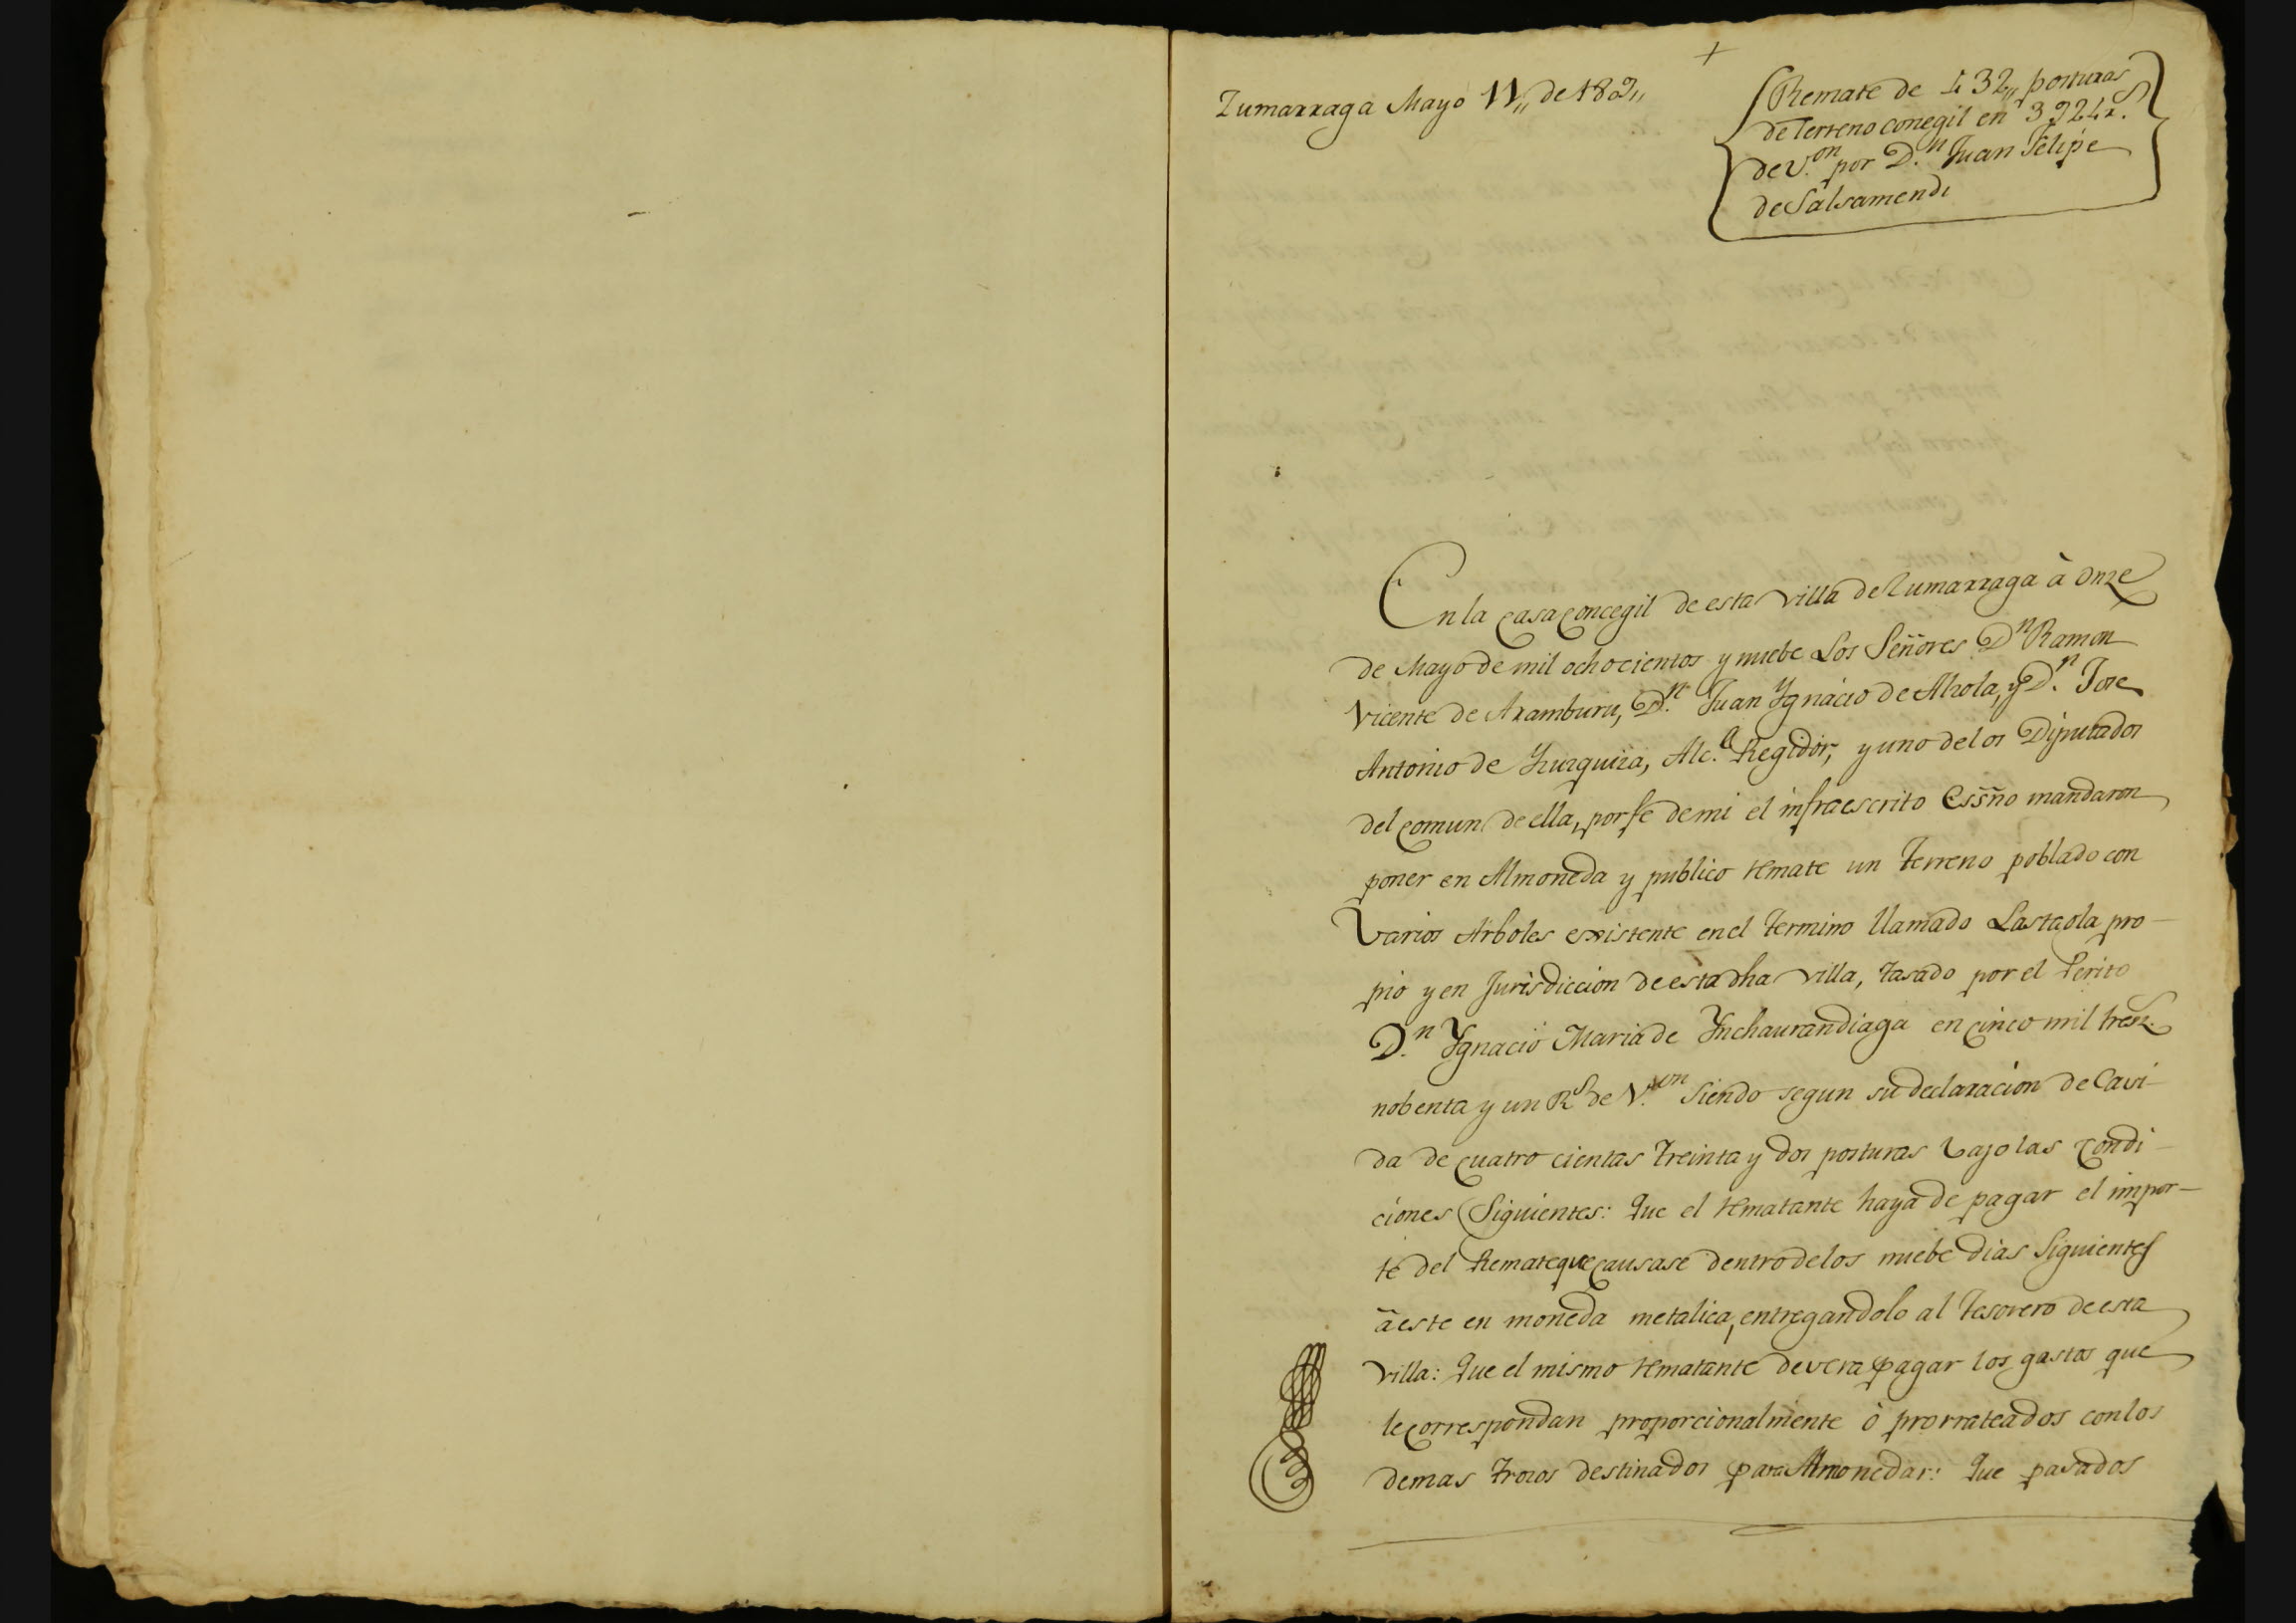 +
Zumarraga Mayo 11,, de 1809,,
Remate de 432,, posturas
de Terreno conegil en
de V.on por D.n Juan Felipe
de Salsamendi
En la casa Concegil de esta villa de Zumarraga à onze
de Mayo de mil ochocientos y nuebe Los Señores Dn Ramon
Vicente de Aramburu, D.n Juan Ygnacio de Alzola, y D.n Jose
Antonio de Yzuzquiza, Alc.e Regidor, y uno de los Diputados
del comun de ella, por fe de mi el infraescrito Essño mandaron
poner en Almoneda y publico remate un Terreno poblado con
Varios Arboles existente en el termino llamado Lastaola pro-
pio y en Jurisdiccion de esta dha villa, tasado por el Perito
D.n Ygnacio Maria de Ynchaurandiaga en cinco mil tresz.
nobenta y un Rs de V.on Siendo segun su declaracion de Cavi-
da de quatro cientas treinta y dos posturas vajo las condi-
ciones Siguientes: Que el rematante haya de pagar el impor-
te del Remate que causase dentro de los nuebe dias Siguientes
à este en moneda metalica, entregandolo al Tesorero de esta
villa: Que el mismo rematante devera pagar los gastos que
le correspondan proporcionalmente ó prorrateados con los
demas trozos destinados para Almonedar: Que pasados